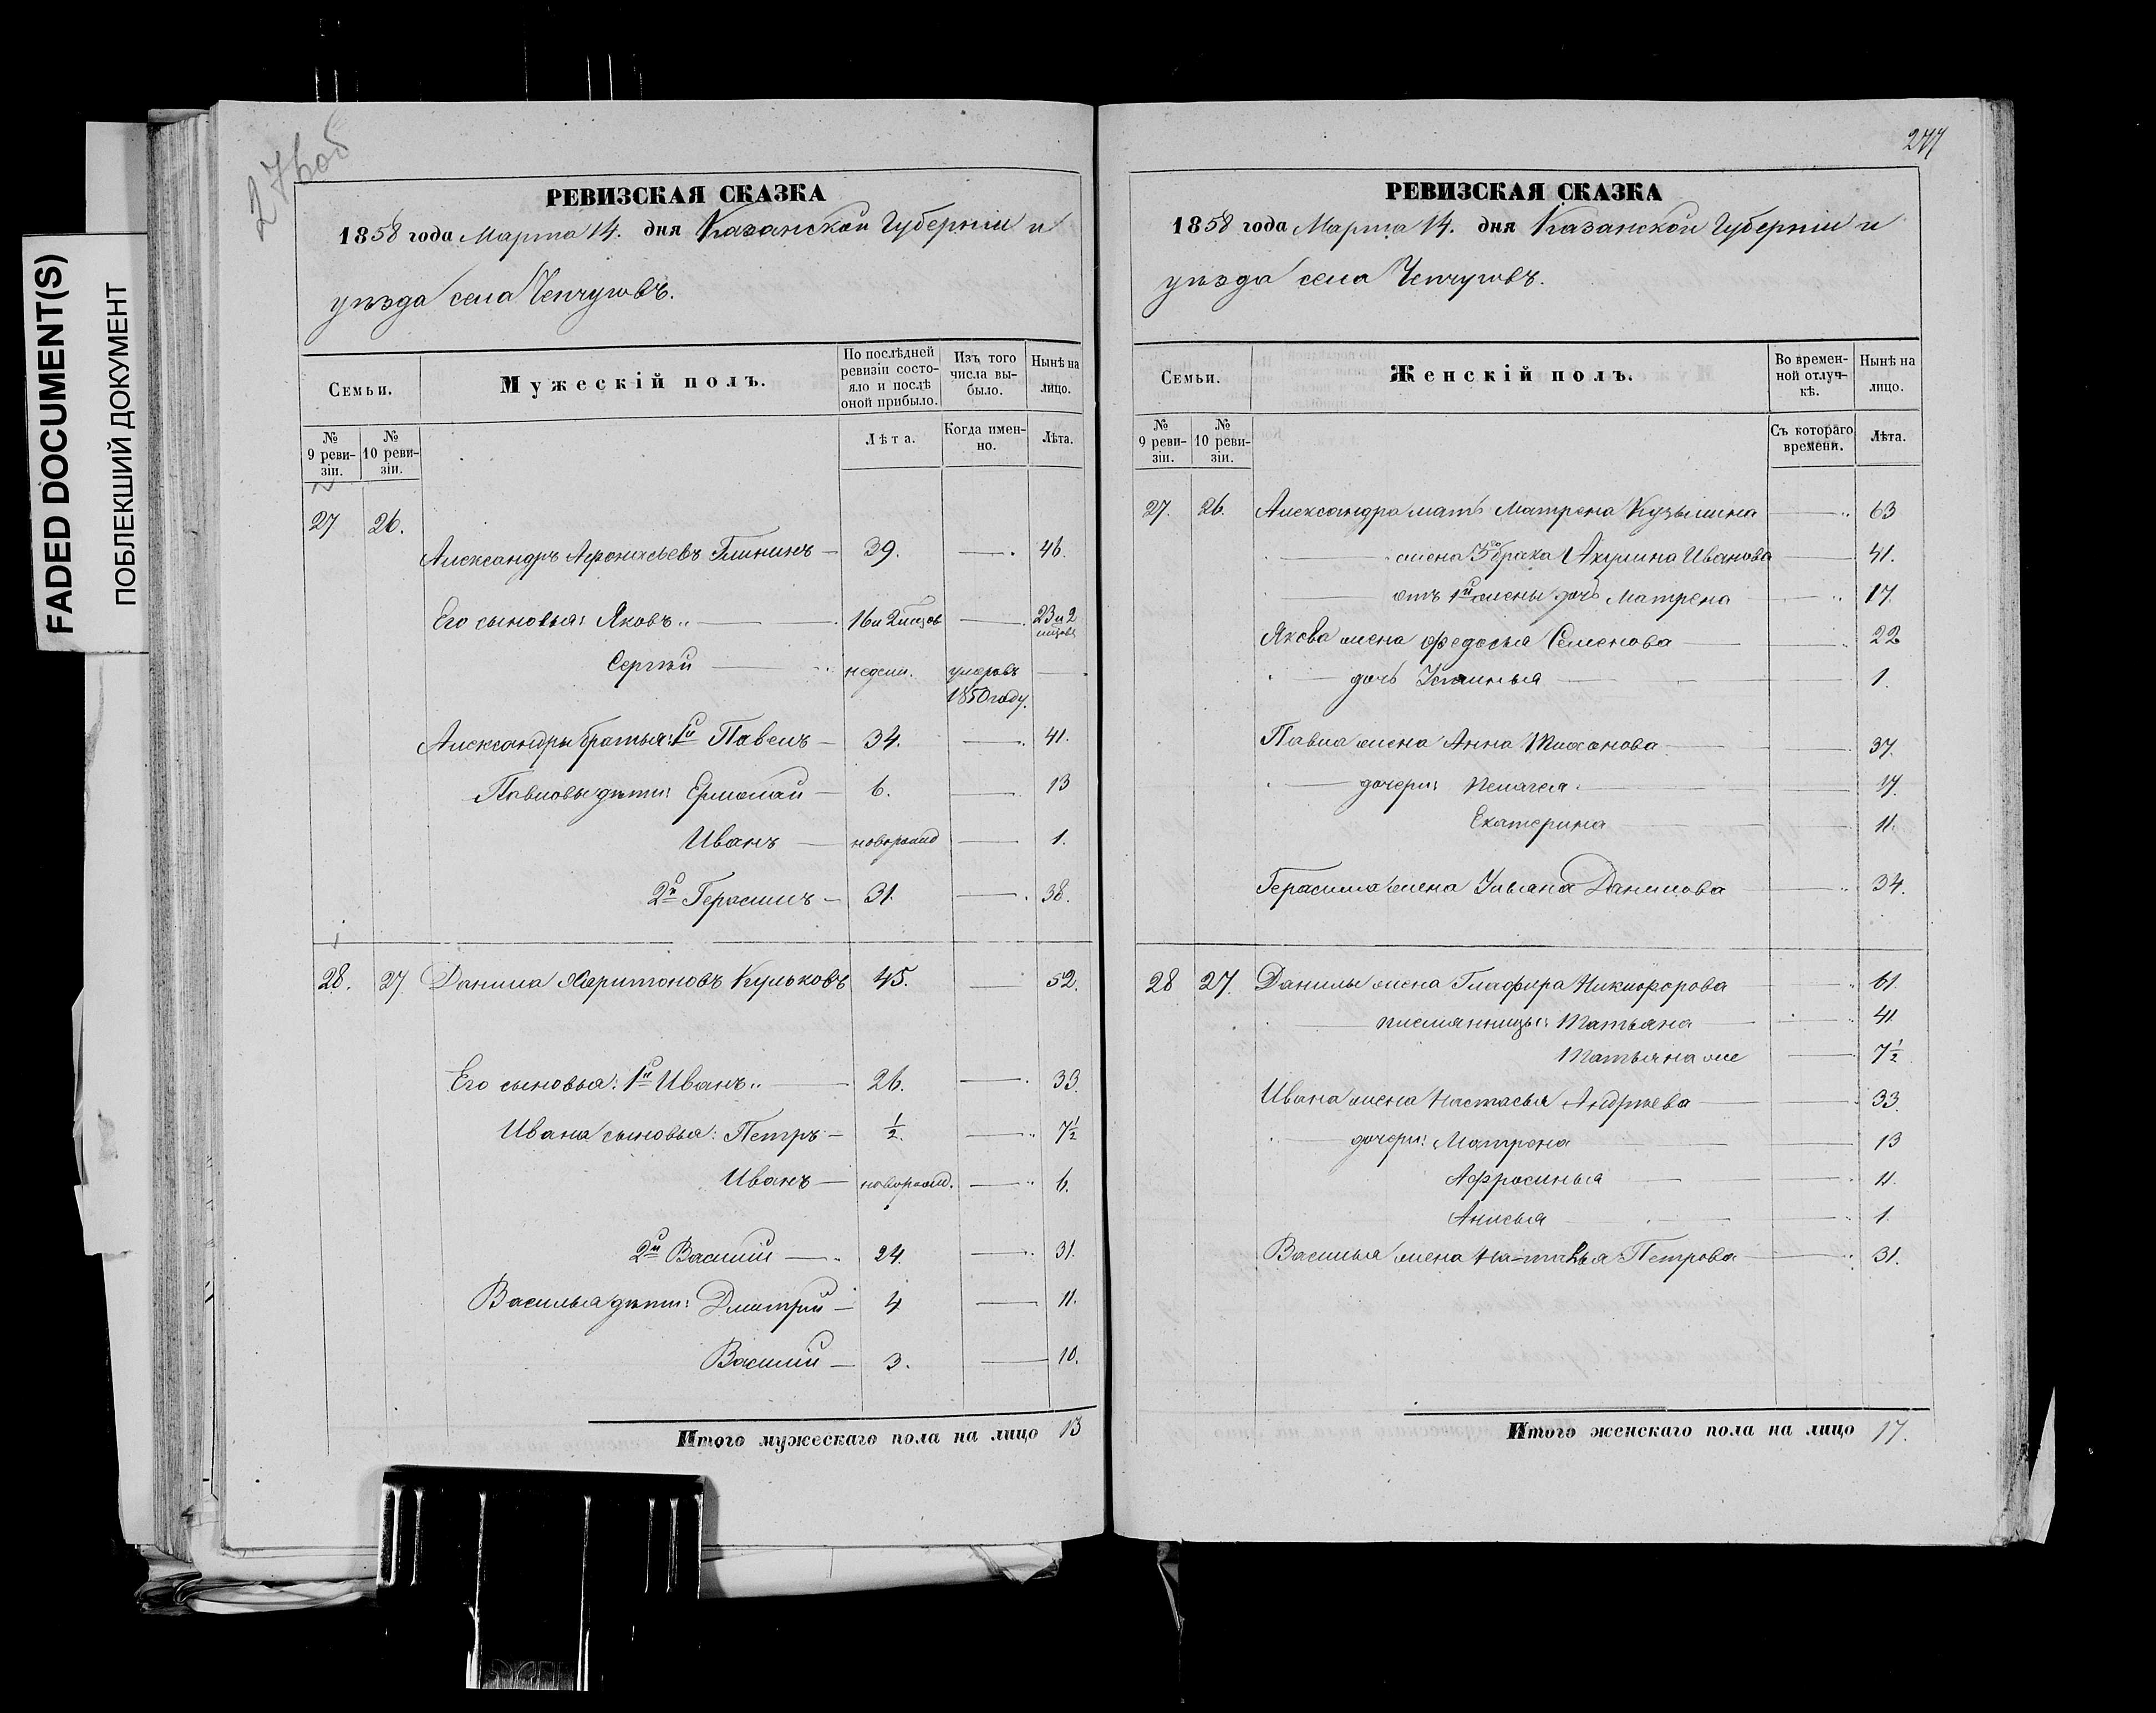 FADED DOCUMENT(S)
ПОБЛЕКШИЙ ДОКУМЕНТ
276об
РЕВИЗСКАЯ СКАЗКА
1858 года Марта 14. дня Казанской Губерніи и
уѣзда села Чепчуговъ.
Семьи. Мужескій полъ. По послѣдней ревизіи состояло и послѣ оной прибыло. Изъ того числа выбыло. Нынѣ на лицо.
№ 9 ревизіи. № 10 ревизіи. Лѣта. Когда именно. Лѣта.
27 26.
Александръ Афонасьевъ Глининъ — 39. — 46.
Его сыновья: Яковъ — 16 и 2 мцовъ — 23 и 2 мцовъ
Сергѣй — недели. умеръ въ 1850 году. —
Александры братья: 1й Павелъ — 34. — 41.
Павловы дѣти: Ермолай — 6. — 13
Иванъ — новорожд — 1.
2й Герасимъ — 31. — 38.
28. 27 Данила Харитоновъ Кульковъ 45. — 52.
Его сыновья: 1й Иванъ — 26. — 33.
Ивана сыновья: Петръ — 1/2. — 7 1/2
Иванъ — новорожд. — 6.
2й Василій — 24. — 31.
Василья дѣти: Дмитрій — 4 — 11.
Василий — 3. — 10.
Итого мужескаго пола на лицо 13
277
РЕВИЗСКАЯ СКАЗКА
1858 года Марта 14. дня Казанской Губерніи и
уѣзда села Чепчуговъ.
Семьи. Женскій полъ. Во временной отлучкѣ. Нынѣ на лицо.
№ 9 ревизіи. № 10 ревизіи. Съ котораго времени. Лѣта.
27. 26. Александра мать Матрена Кузьмина — 63
— жена 3го брака Акулина Иванова — 41.
— отъ 1й жены дочь Матрена — 17
Якова жена Федосья Семенова — 22
— дочь Устинья — 1.
Павла жена Анна — 37.
— дочери: Пелагея — 17.
Екатерина — 11.
Герасима жена Ульяна Данилова — 34.
28 27. Данилы жена Глафира Никифорова — 61.
— племянницы: Татьяна — 41
Татьяна же — 7 1/2
Ивана жена Настасья Андреева — 33.
— дочери: Матрена — 13
Афросинья — 11.
Анисья — 1.
Василья жена Наталья Петрова — 31.
Итого женскаго пола на лицо 17.